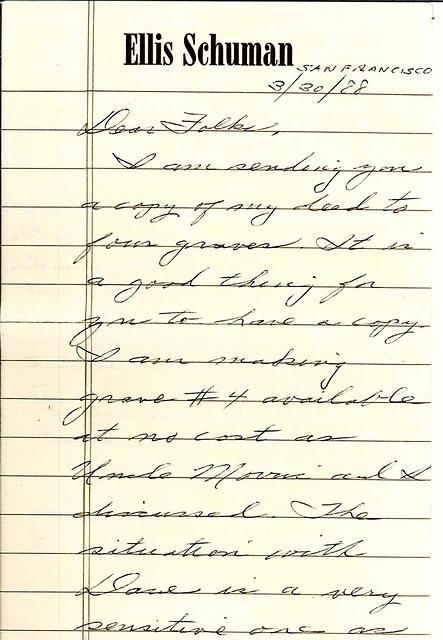 Ellis Schuman
SAN FRANCISCO
3/30/88
Dear Folks,
I am sending you
a copy of my deed to
four graves. It is
a good thing for
you to have a copy.
I am making
grave # 4 available
at no cost as
Uncle Morris and I
discussed. The
situation with
Dave is a very
sensitive one as